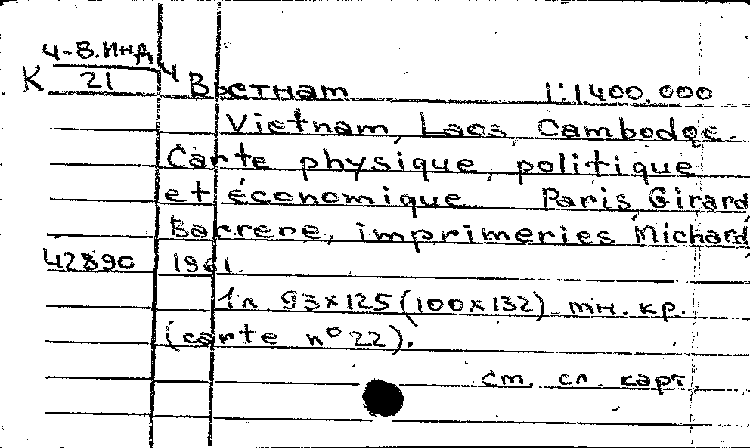 Ч-В.Инд
К 21 Ч Вьетнам 1:1.400.000
Vietnam, Laos, Cambodge.
Carte physique, politique
et économique. Paris, Girard,
Barrere, imprimeries Michard,
42890 1961.
1л. 93х125(100х132) мн. кр.
(carte nº 22).
см. сл. карт.